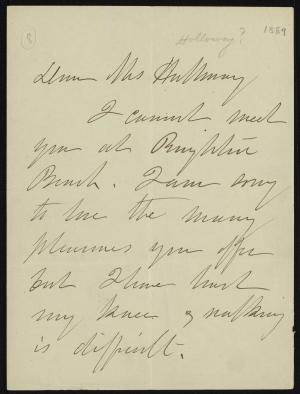 8 Holloway? 1889
Dear Mrs Holloway
I cannot meet
you at Brighton
Beach. I am sorry
to lose the many
pleasures you offer
but I have hurt
my knee & walking
is difficult.